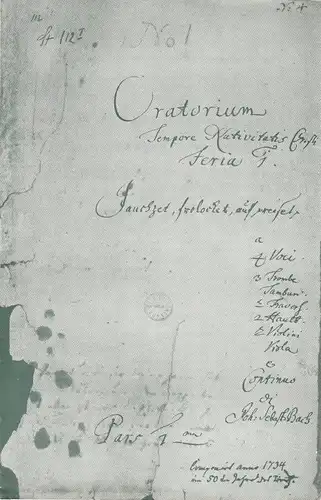 No 4
No 1
Oratorium
Tempore Nativitatis Christi
Feria 1.
Jauchzet, frolocket, auf preiset
a
4 Voci.
3 Trombe
Tamburi
2 Travers.
2 Hautb.
2 Violini
Viola
e
Continuo
di
Joh. Sebast. Bach
Pars 1 ma
anno 1734
im 50